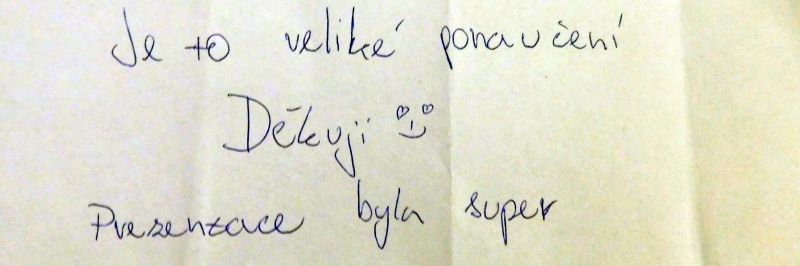 Je to veliké ponaučení
Děkuji
Prezentace byla super